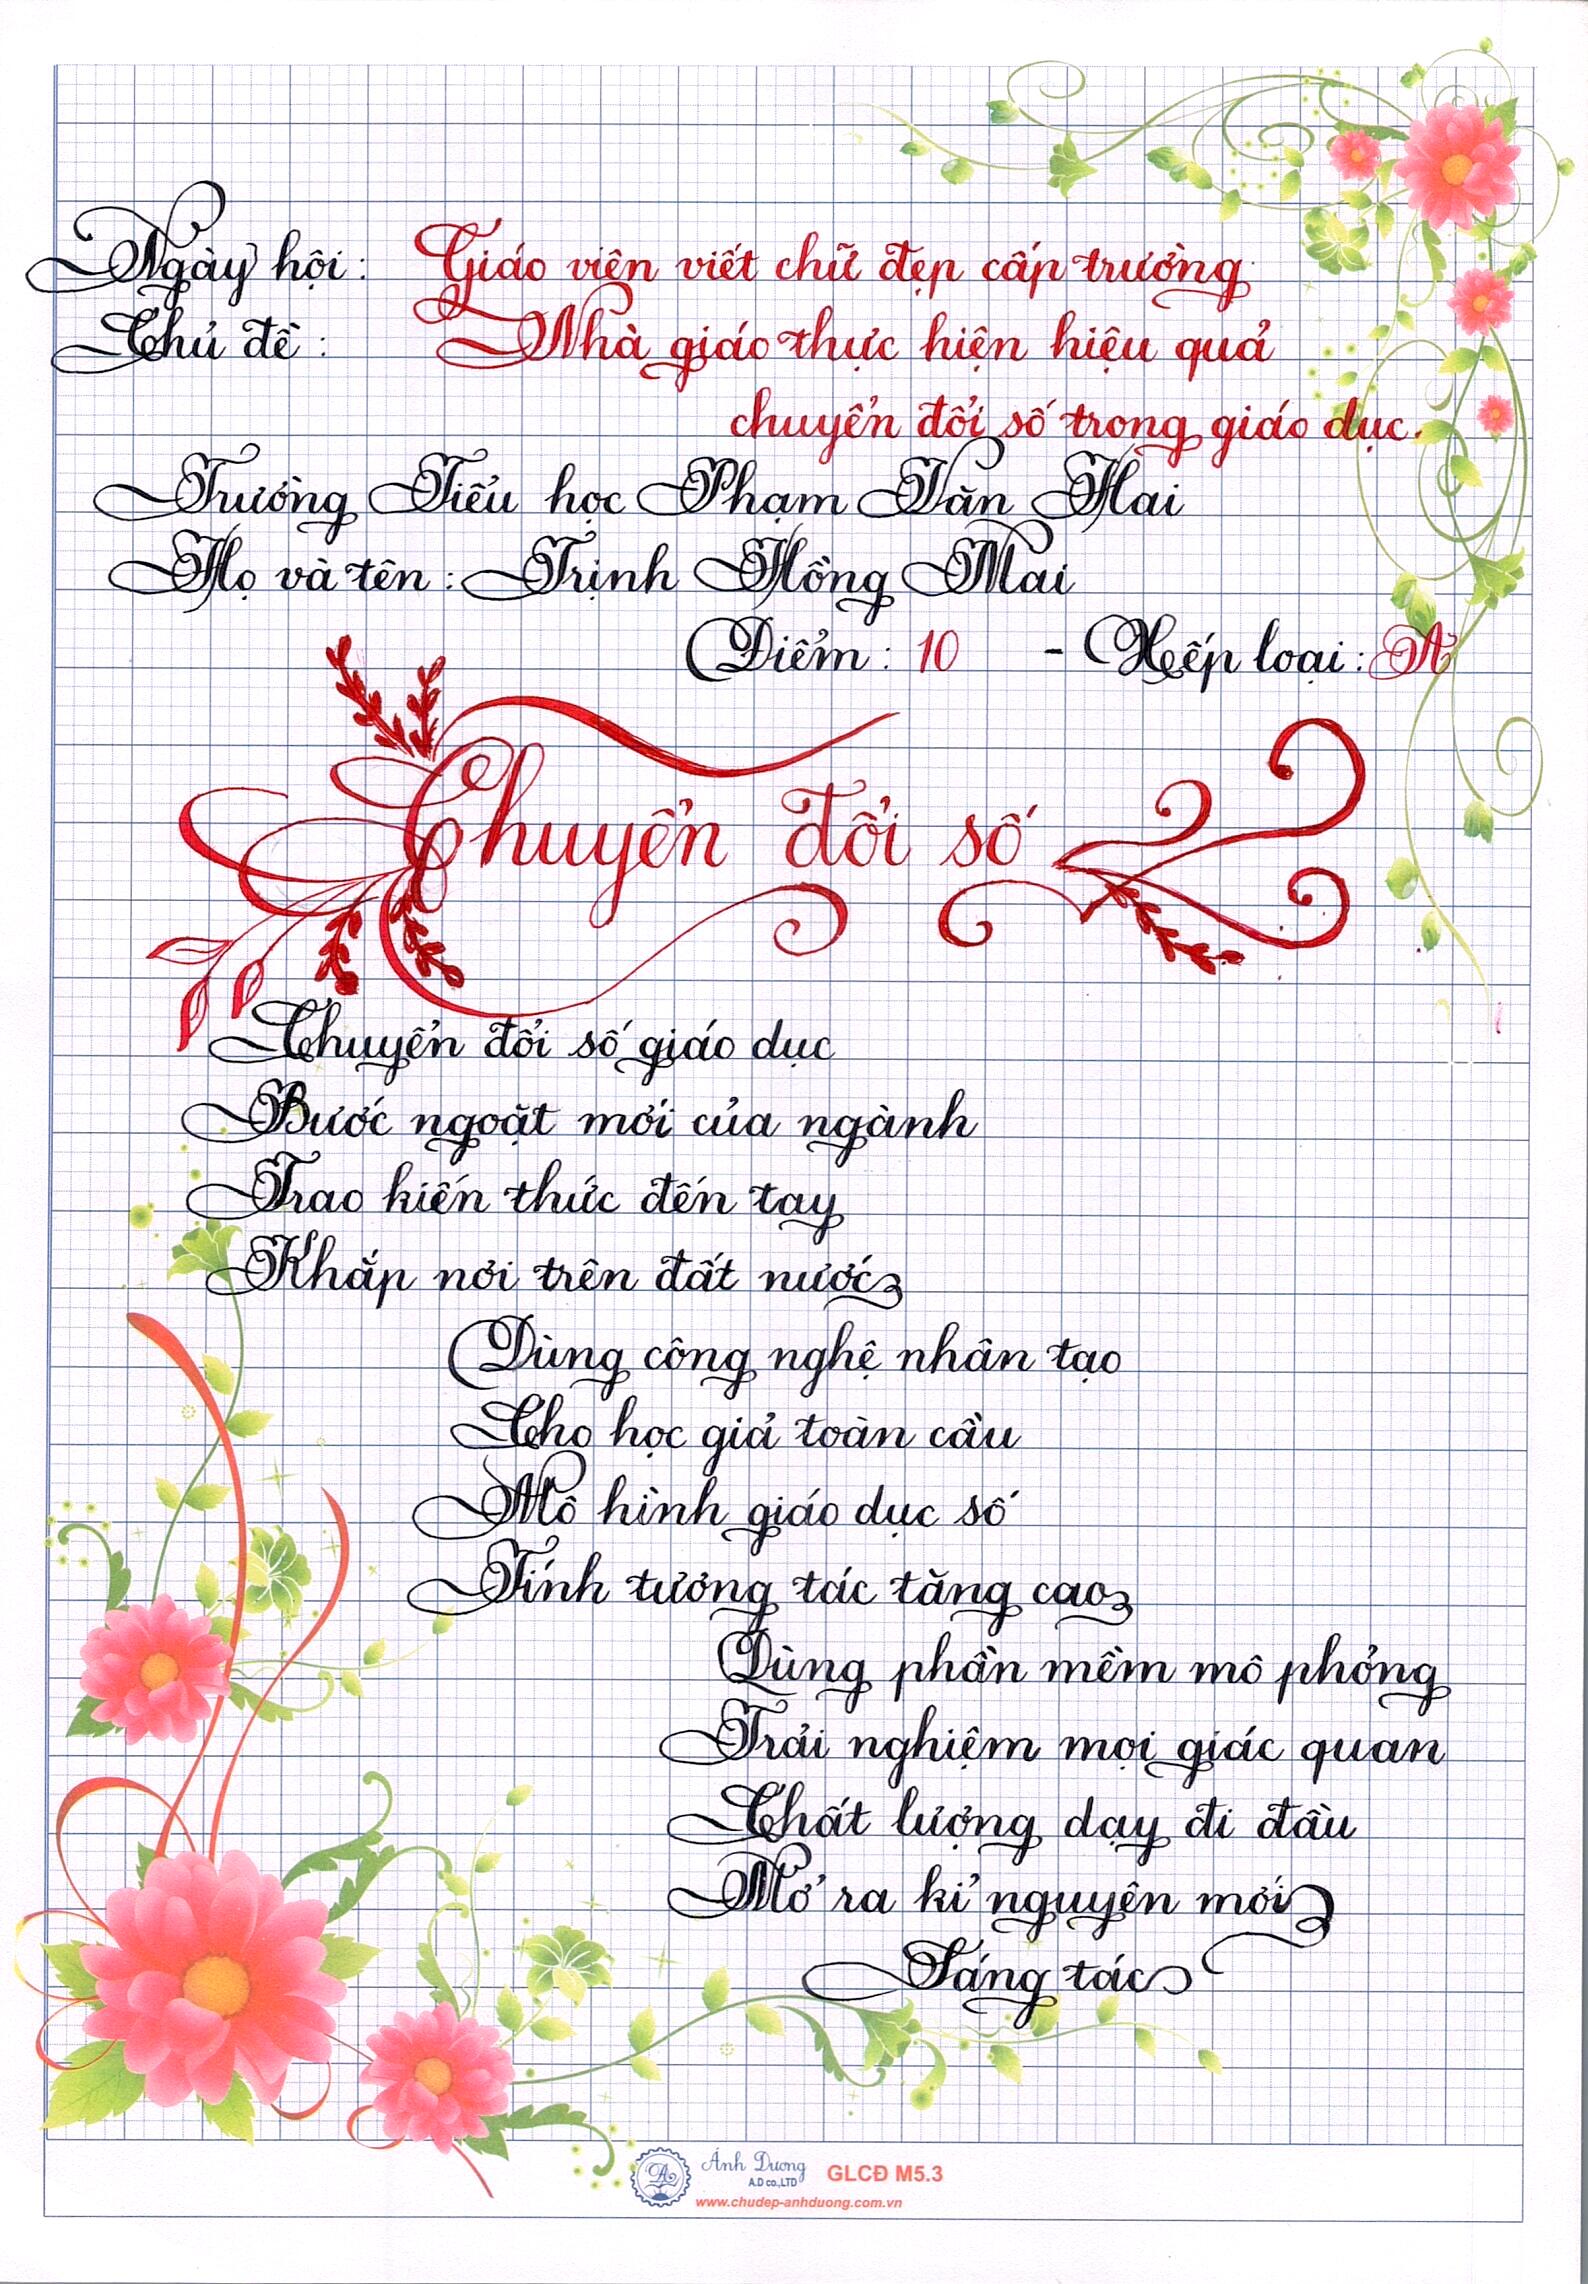 Ngày hội: Giáo viên viết chữ đẹp cấp trường
Chủ đề: Nhà giáo thực hiện hiệu quả
chuyển đổi số trong giáo dục.
Trường Tiểu học Phạm Văn Hai
Họ và tên: Trịnh Hồng Mai
Điểm: 10 - Xếp loại: A
Chuyển đổi số
Chuyển đổi số giáo dục
Bước ngoặt mới của ngành
Trao kiến thức đến tay
Khắp nơi trên đất nước
Dùng công nghệ nhân tạo
Cho học giả toàn cầu
Mô hình giáo dục số
Tính tương tác tăng cao
Dùng phần mềm mô phỏng
Trải nghiệm mọi giác quan
Chất lượng dạy đi đầu
Mở ra kỉ nguyên mới
Sáng tác
Ánh Dương
A.D co.,LTD
GLCĐ M5.3
www.chudep-anhduong.com.vn